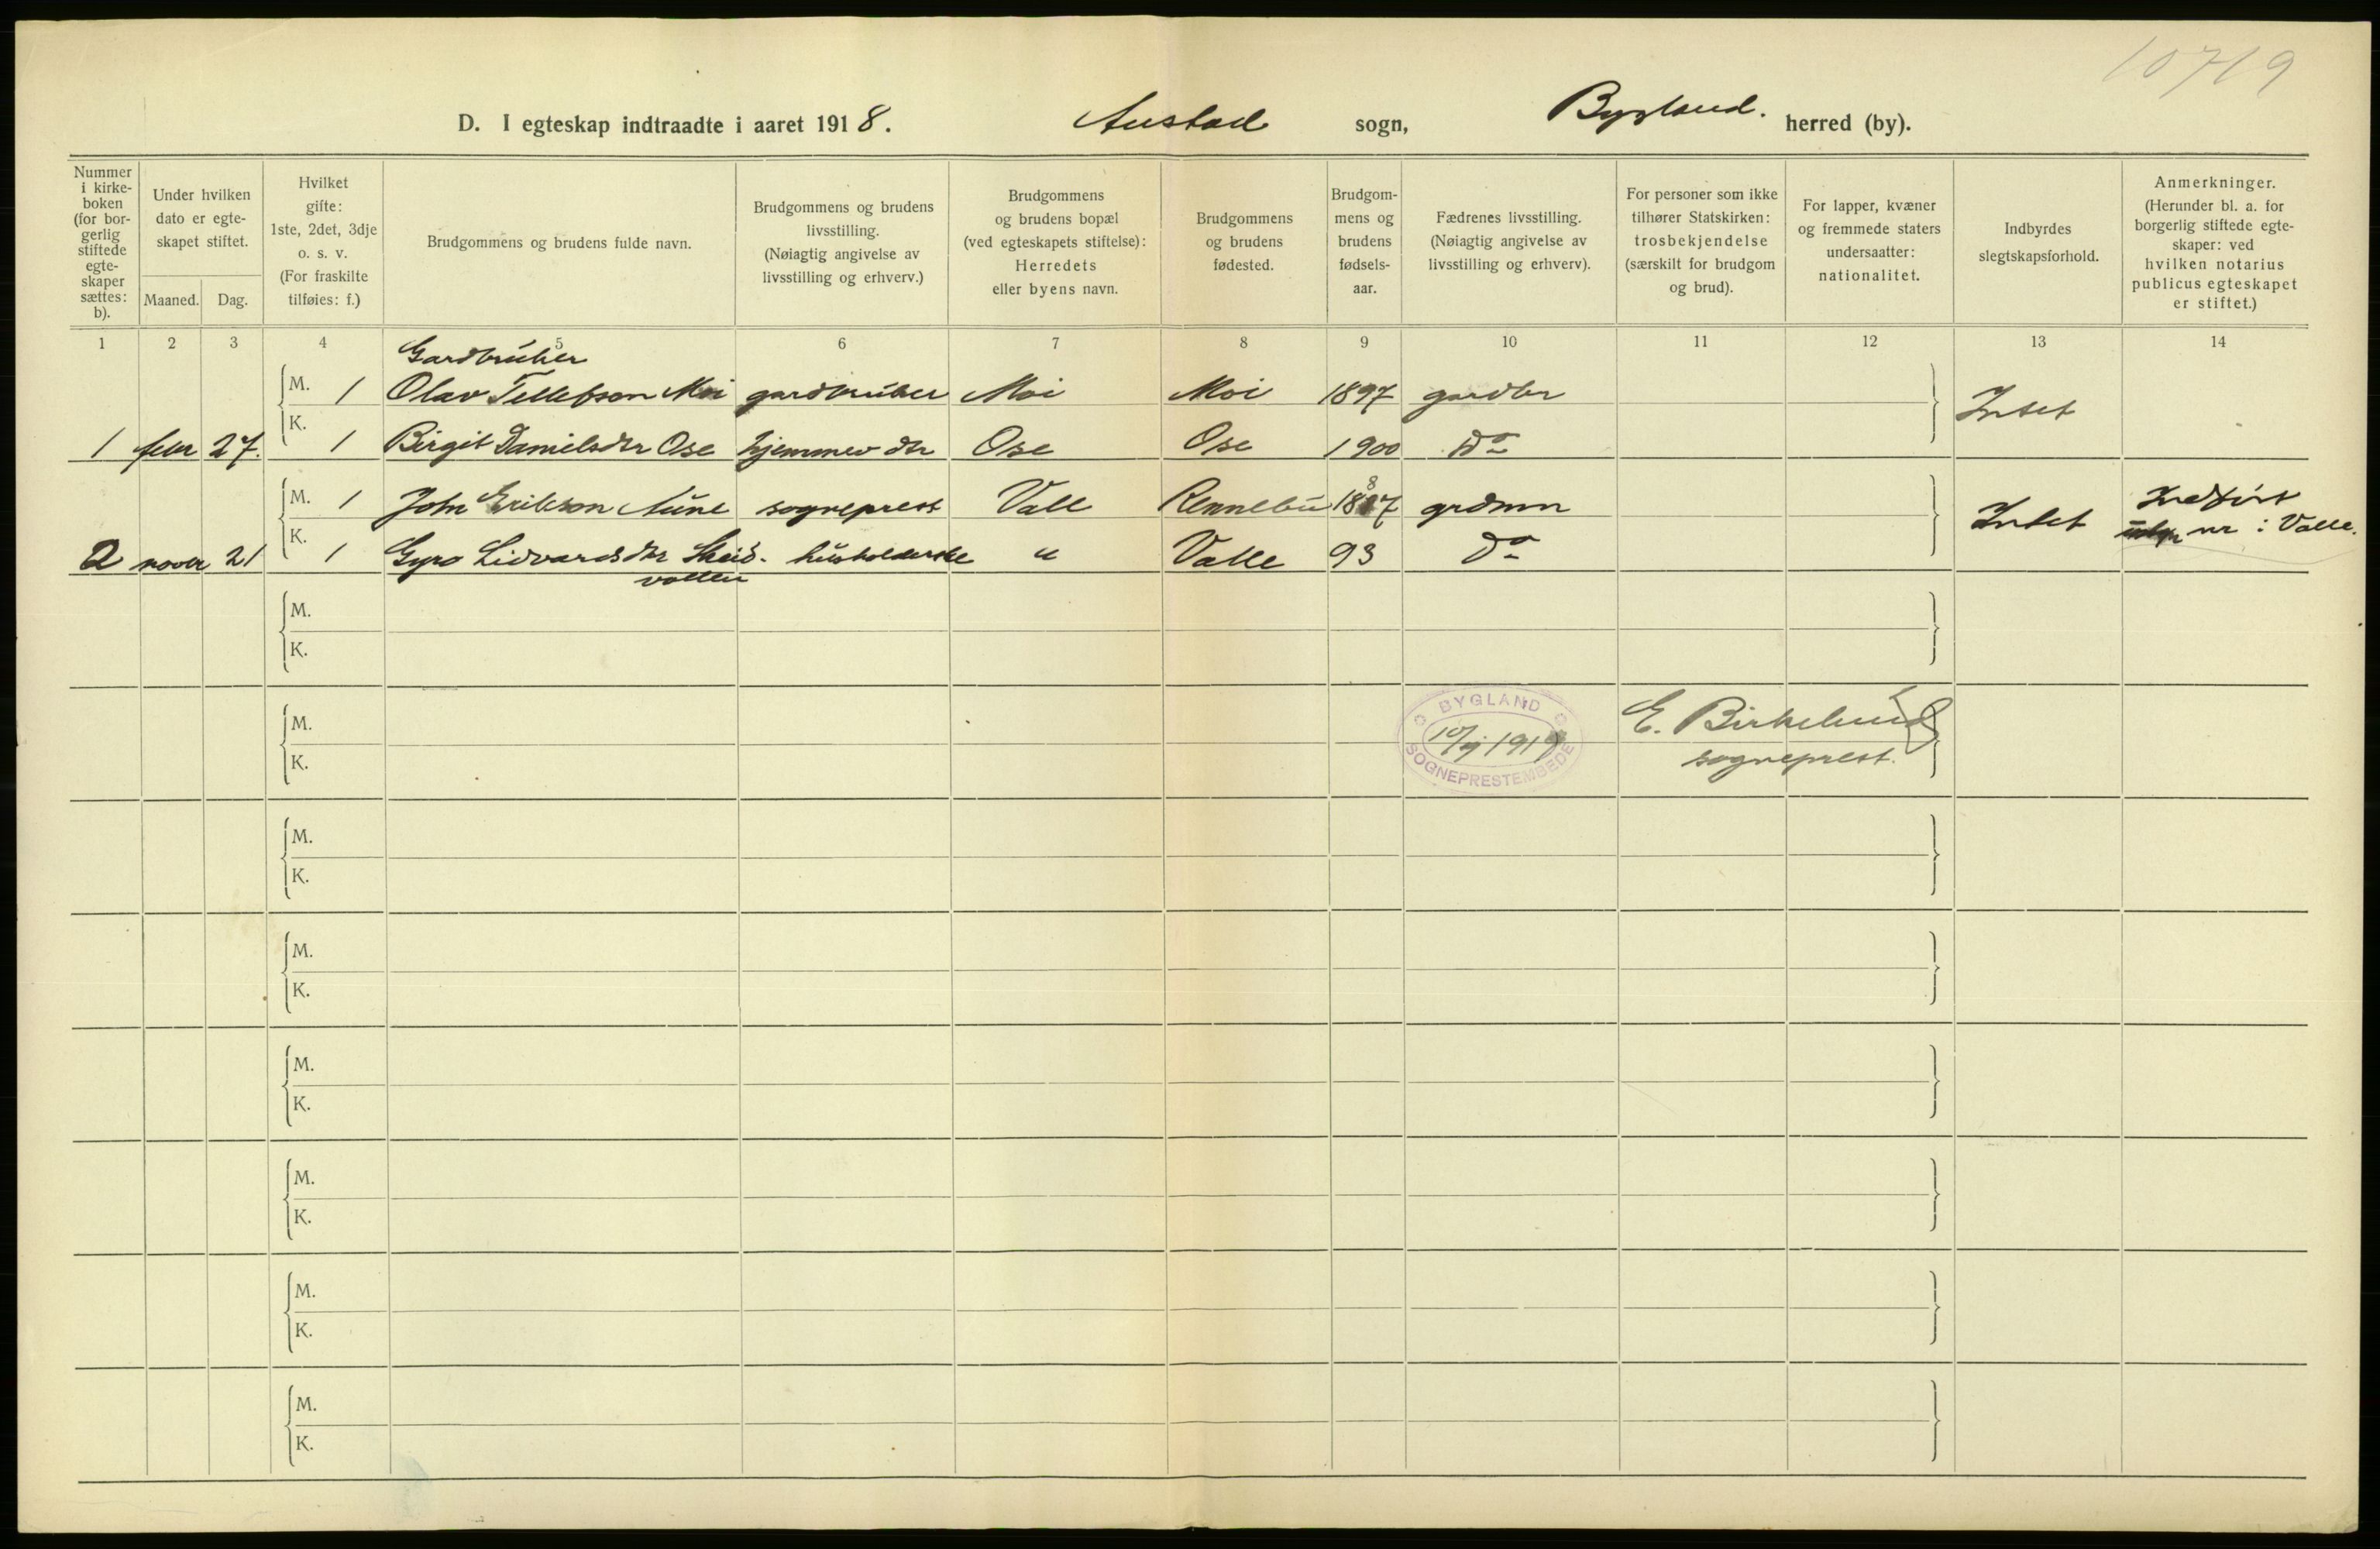 10719
D. I egteskap indtraadte i aaret 1918. Austad sogn, Bygland. herred (by).
Nummer i kirkeboken (for borgerlig stiftede egteskaper sættes: b).
Under hvilken dato er egteskapet stiftet.
Maaned. Dag.
Hvilket gifte: 1ste, 2det, 3dje o. s. v. (For fraskilte tilføies: f.)
Brudgommens og brudens fulde navn.
Brudgommens og brudens livsstilling. (Nøiagtig angivelse av livsstilling og erhverv.)
Brudgommens og brudens bopæl (ved egteskapets stiftelse): Herredets eller byens navn.
Brudgommens og brudens fødested.
Brudgommens og brudens fødselsaar.
Fædrenes livsstilling. (Nøiagtig angivelse av livsstilling og erhverv).
For personer som ikke tilhører Statskirken: trosbekjendelse (særskilt for brudgom og brud).
For lapper, kvæner og fremmede staters undersaatter: nationalitet.
Indbyrdes slegtskapsforhold.
Anmerkninger. (Herunder bl. a. for borgerlig stiftede egteskaper: ved hvilken notarius publicus egteskapet er stiftet.)
1 2 3 4 5 6 7 8 9 10 11 12 13 14
Gardbruker
M. 1 Olav Tellefson Moi gardbruker Moi Moi 1897 gardbr Intet
1 febr 27. K. 1 Birgit Danielsdtr Ose hjemmev dtr Ose Ose 1900 Do
M. 1 John Erikson Aune sogneprest Valle Rennebu 1887 grdmn Intet Indført
2 novbr 21 K. 1 Gyro Lidvardsdtr Skeid- husholderske " Valle 93 Do nr i Valle.
vollen
M.
K.
M.
K.
BYGLAND
10/1 1919
SOGNEPRESTEMBEDE
E. Birkelund
sogneprest.
M.
K.
M.
K.
M.
K.
M.
K.
M.
K.
M.
K.